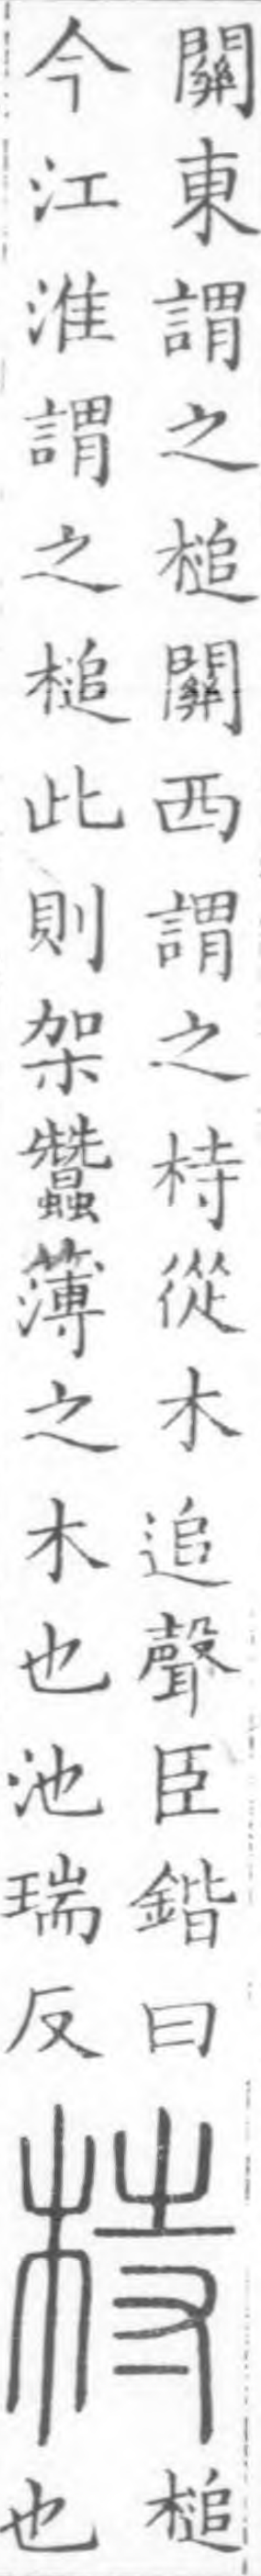 關東謂之槌關西謂之㭙從木追聲臣鍇曰
今江淮謂之槌此則架蠶薄之木也池瑞反
㭙
槌
也